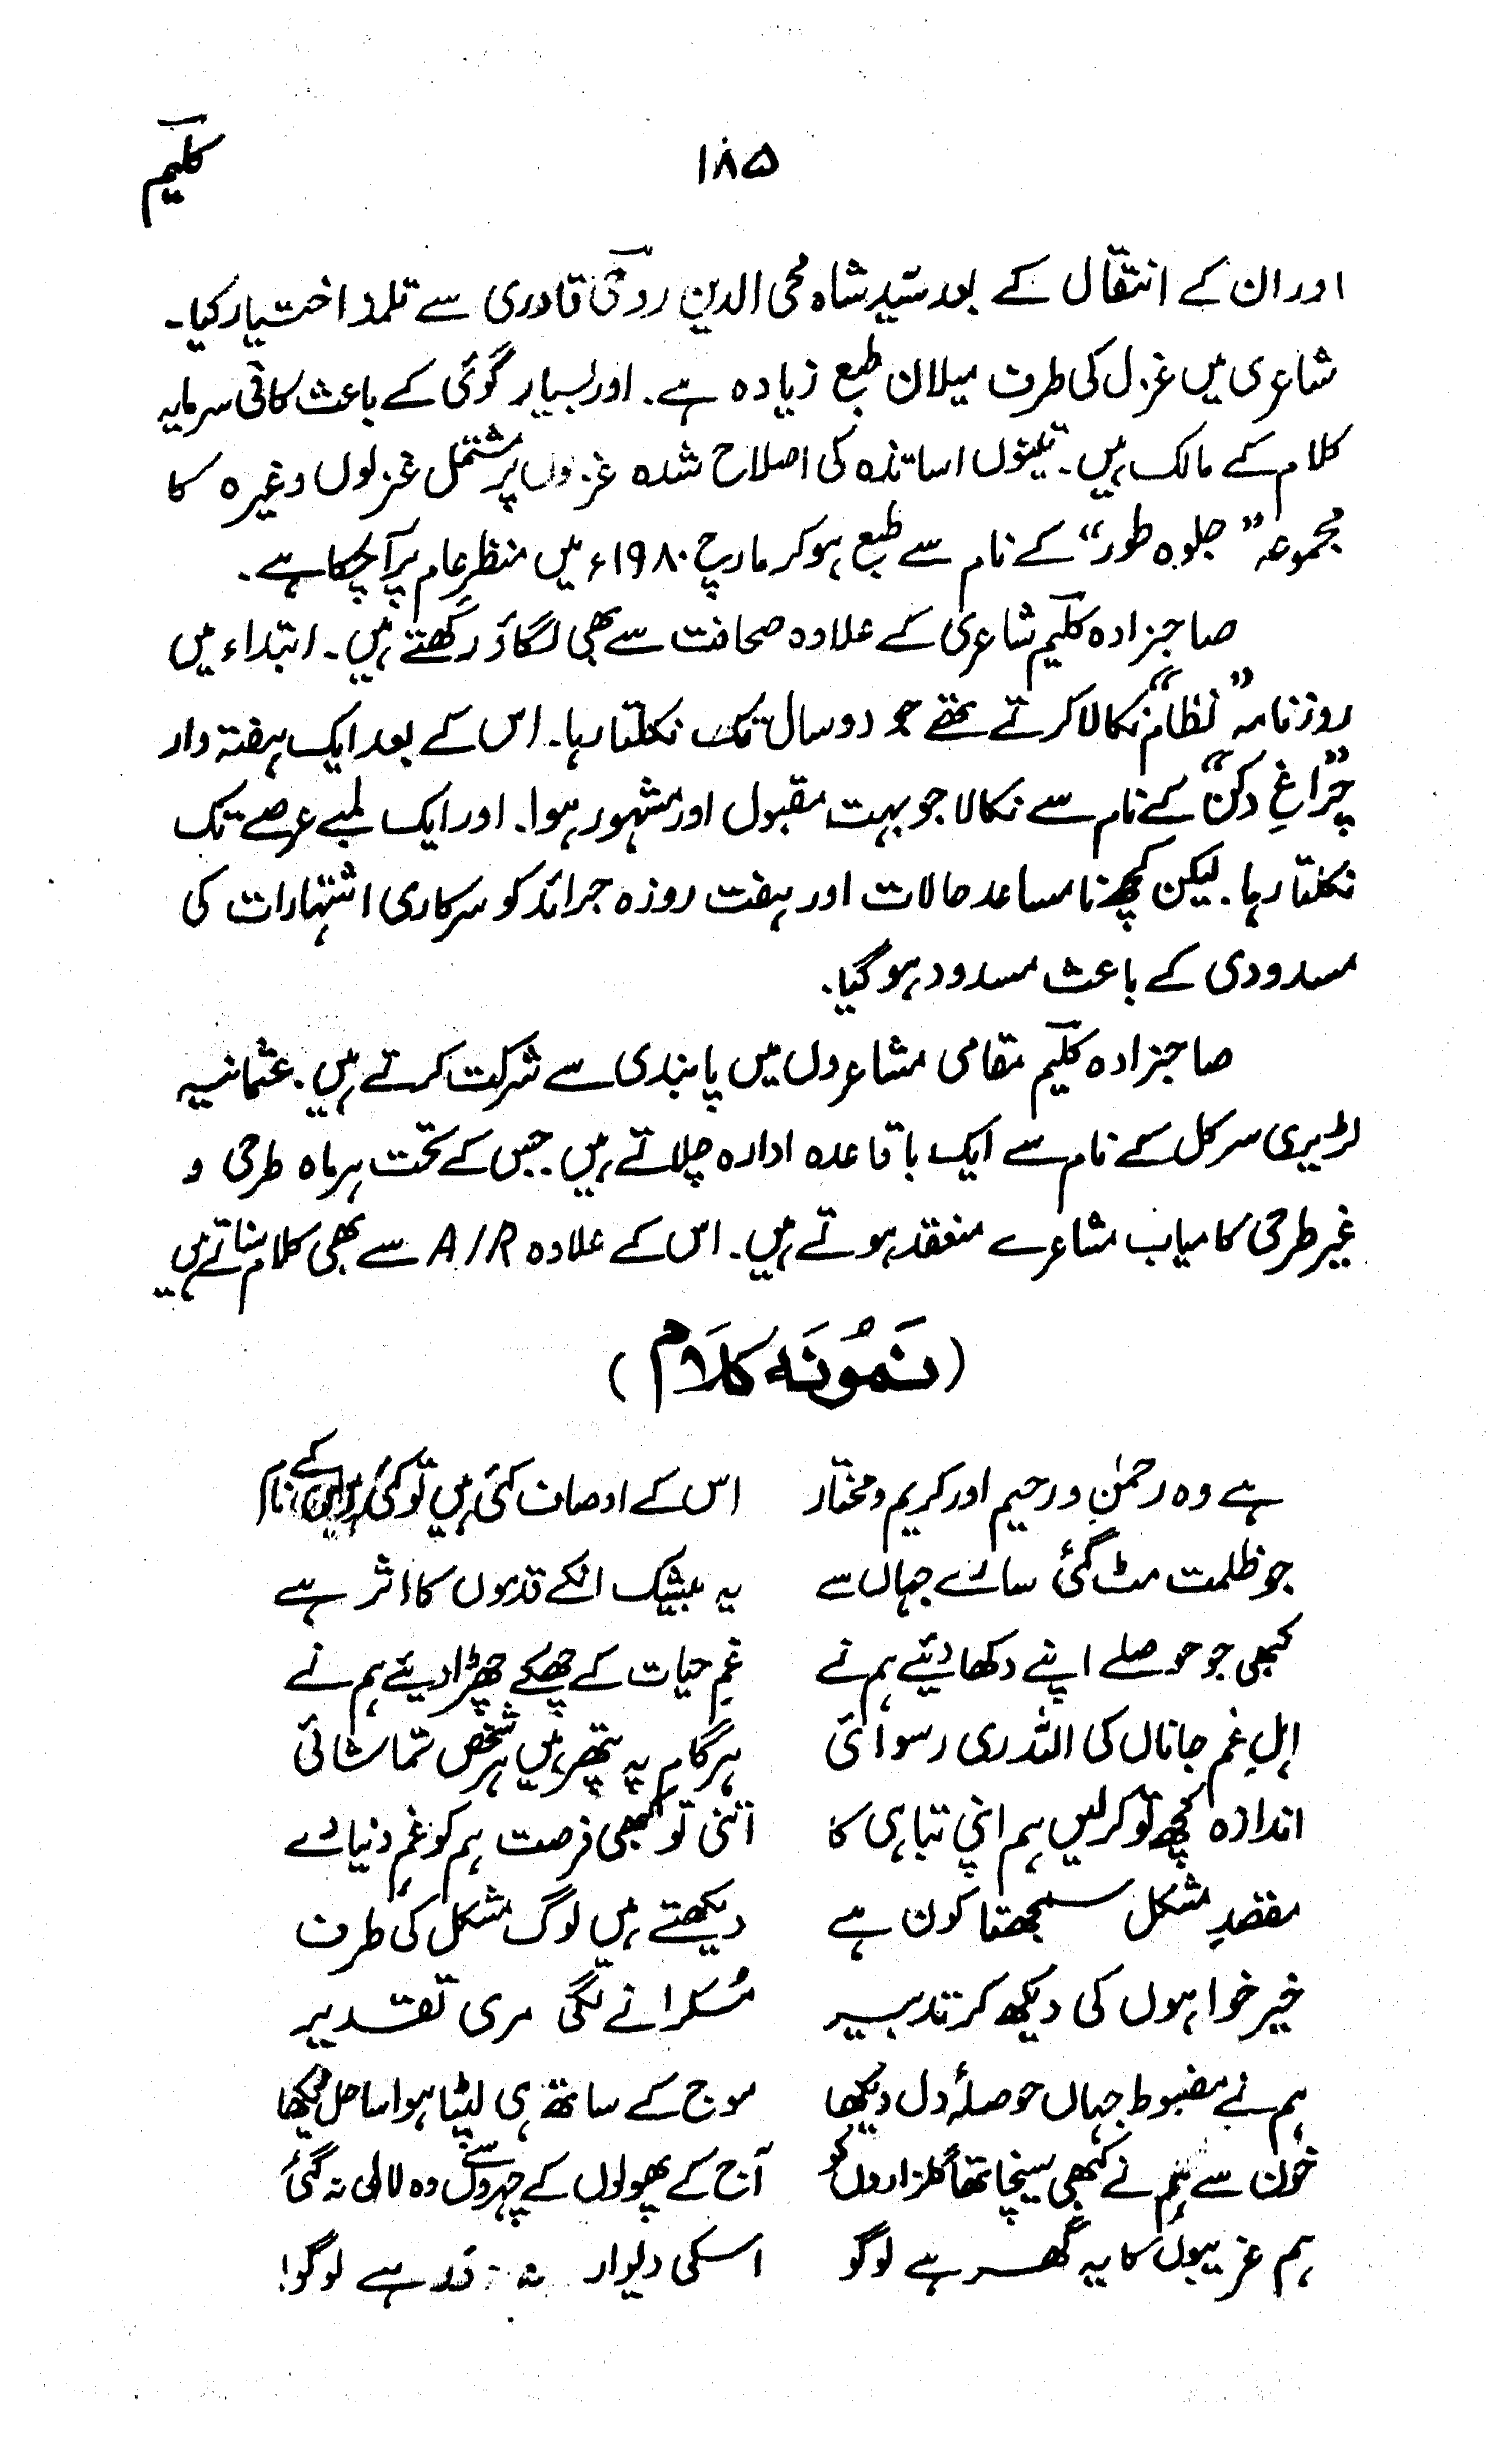 ۱۸۵
کلیم
اور ان کے انتقال کے بعد سیّد شاہ محی الدین رومی قادری سے تلمذ اختیار کیا۔
شاعری میں غزل کی طرف میلان طبع زیادہ ہے۔ اور بسیار گوئی کے باعث کافی سرمایہ
کلام کے مالک ہیں۔ تینوں اساتذہ کی اصلاح شدہ غزلوں پر مشتمل غزلوں وغیرہ کا
مجموعہ "جلوہ طور" کے نام سے طبع ہو کر مارچ ۱۹۸۰ء میں منظرِ عام پر آچکا ہے۔
صاحبزادہ کلیم شاعری کے علاوہ صحافت سے بھی لگاؤ رکھتے ہیں۔ ابتداء میں
روزنامہ "نظام" نکالا کرتے تھے جو دو سال تک نکلتا رہا۔ اس کے بعد ایک ہفتہ وار
"چراغِ دکن" کے نام سے نکالا جو بہت مقبول اور مشہور ہوا۔ اور ایک لمبے عرصے تک
نکلتا رہا۔ لیکن کچھ نامساعد حالات اور ہفت روزہ جرائد کو سرکاری اشتہارات کی
مسدودی کے باعث مسدود ہوگیا۔
صاحبزادہ کلیم مقامی مشاعروں میں پابندی سے شرکت کرتے ہیں۔ عثمانیہ
لٹریری سرکل کے نام سے ایک باقاعدہ ادارہ چلاتے ہیں۔ جس کے تحت ہر ماہ طرحی و
غیر طرحی کامیاب مشاعرے منعقد ہوتے ہیں۔ اس کے علاوہ A/R سے بھی کلام سناتے ہیں
(نَمُونَہ کَلَام)
ہے وہ رحمٰن و رحیم اور کریم و مختار اس کے اوصاف کئی ہیں تو کئی کے نام
جو ظلمت مٹ گئی سارے جہاں سے یہ بیشک انکے قدموں کا اثر ہے
کبھی جو حوصلے اپنے دکھا دیئے ہم نے غمِ حیات کے چھکے چھڑا دیئے ہم نے
اہلِ غمِ جاناں کی اللہ ری رسوائی ہر گام پہ پتھر ہیں ہر شخص تماشائی
اندازہ کچھ تو کرلیں ہم اپنی تباہی کا اتنی تو کبھی فرصت ہم کو غمِ دنیا دے
مقصدِ مشکل سمجھتا کون ہے دیکھتے ہیں لوگ مشکل کی طرف
خیر خواہوں کی دیکھ کر تدبیر مُسکرانے لگی مری تقدیر
ہم نے مضبوط جہاں حوصلۂ دل دیکھا موج کے ساتھ ہی لپٹا ہوا ساحل دیکھا
خون سے ہم نے کبھی سینچا تھا گلزاروں کو آج کے پھولوں کے چہروں سے وہ لالی نہ گئی
ہم غریبوں کا یہ گھر ہے لوگو اسکی دیوار نہ در ہے لوگو!